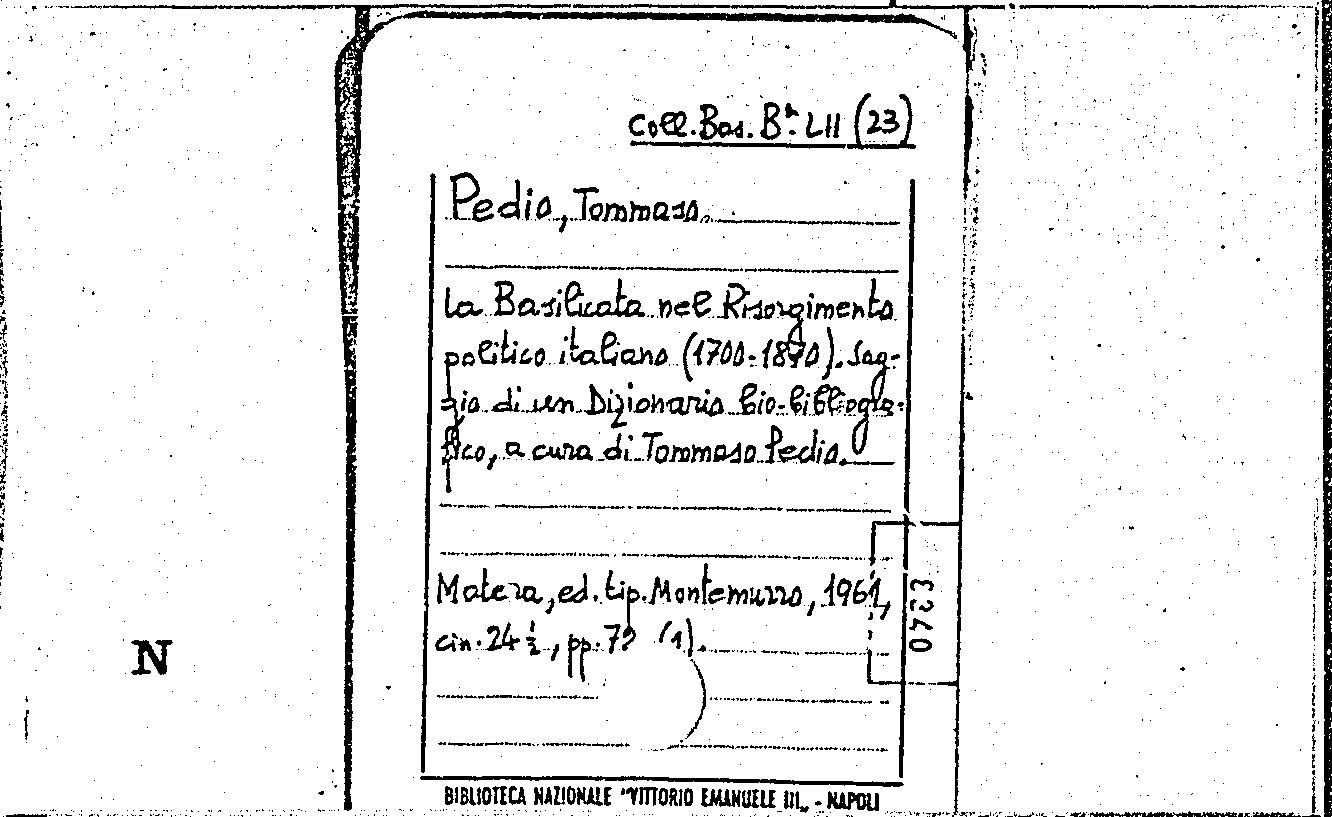 Coll. Bas. Bª. LII (23)
Pedio, Tommaso.
La Basilicata nel Risorgimento
politico italiano (1700-1870). Sag-
gio di un Dizionario bio-bibliogra-
fico, a cura di Tommaso Pedio.
Matera, ed. tip. Montemurro, 1961,
cm. 24 ½, pp. (1).
0423
N
BIBLIOTECA NAZIONALE "VITTORIO EMANUELE III„ - NAPOLI